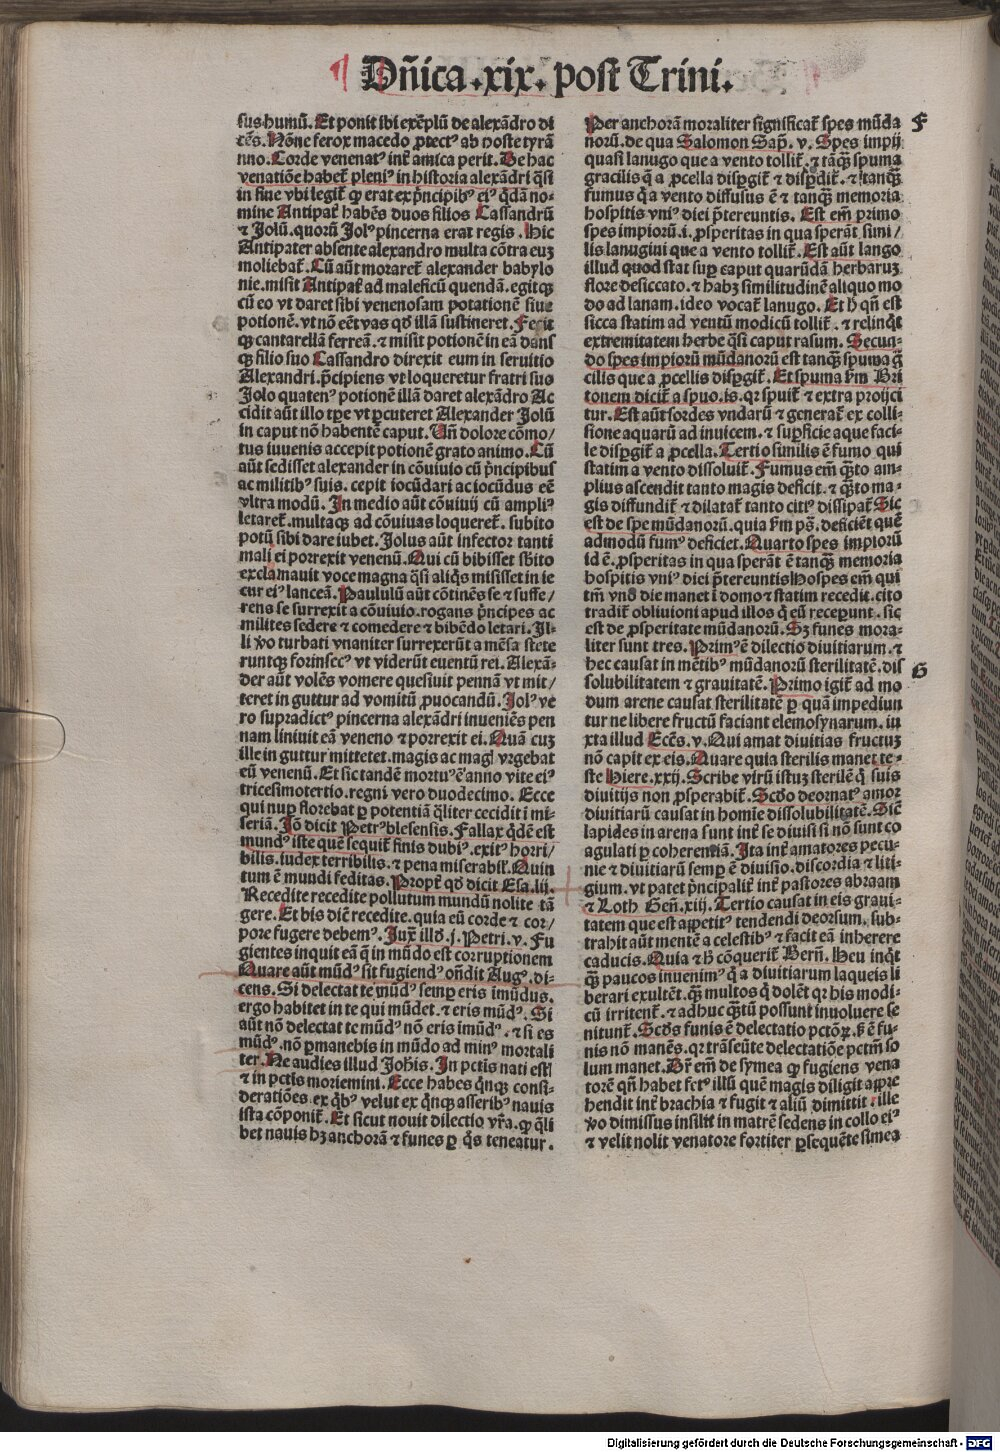 Dñica .xix. post Trini.
sus humū. Et ponit ibi exēplū de alexādro di
cēs. Nōne ferox macedo ꝓtectꝰ ab hoste tyrā
nno. Corde venenatꝰ int̄ amica perit. De hac
venatiōe habet̄ pleniꝰ in historia alexādri q̄si
in fine vbi legit̄ ꝙ erat ex p̄ncipibꝰ eiꝰ q̄dā no-
mine Antipat̄ habēs duos filios Cassandrū
⁊ Jolū. quorū Jolꝰ pincerna erat regis. Hic
Antipater absente alexandro multa cōtra euꝫ
moliebat̄. Cū aūt moraret̄ alexander babylo
nie. misit Antipat̄ ad maleficū quendā. egitqꝫ
cū eo vt daret sibi venenosam potationē siue
potionē. vt nō eēt vas qd̄ illā sustineret. Fecit
qꝫ cantarellā ferreā. ⁊ misit potionē in eā dans
qꝫ filio suo Cassandro direxit eum in seruitio
Alexandri. p̄cipiens vt loqueretur fratri suo
Jolo quatenꝰ potionē illā daret alexādro Ac
cidit aūt illo tp̄e vt ꝑcuteret Alexander Jolū
in caput nō habentē caput. Vn̄ dolore cōmo/
tus iuuenis accepit potionē grato animo. Cū
aūt sedisset alexander in cōuiuio cū p̄ncipibus
ac militibꝰ suis. cepit iocūdari ac iocūdus eē
vltra modū. In medio aūt cōuiuij cū ampliꝰ
letaret̄. multaqꝫ ad cōuiuas loqueret̄. subito
potū sibi dare iubet. Jolus aūt infector tanti
mali ei porrexit venenū. Qui cū bibisset sb̄ito
exclamauit voce magna q̄si aliq̄s misisset in ie
cur eiꝰ lanceā. Paululū aūt cōtinēs se ⁊ suffe/
rens se surrexit a cōuiuio. rogans p̄ncipes ac
milites sedere ⁊ comedere ⁊ bibēdo letari. Il-
li v̄o turbati vnaniter surrexerūt a mēsa stete
runtqꝫ forinsecꝰ vt viderūt euentū rei. Alexā-
der aūt volēs vomere quesiuit pennā vt mit/
teret in guttur ad vomitū ꝓuocandū. Jolꝰ ve
ro supradictꝰ pincerna alexādri inueniēs pen
nam liniuit eā veneno ⁊ porrexit ei. Quā cuꝫ
ille in guttur mitteret. magis ac magꝭ vrgebat
eū venenū. Et sic tandē mortuꝰ ē anno vite eiꝰ
tricesimotertio. regni vero duodecimo. Ecce
qui nup̄ florebat ꝑ potentiā q̄liter cecidit ī mi-
seriā. Jō dicit Petrꝰ blesensis. Fallax q̄dē est
mundꝰ iste quē sequit̄ finis dubiꝰ. exitꝰ horri/
bilis. iudex terribilis. ⁊ pena miserabil̄. Quin
tum ē mundi feditas. Propt̄ qd̄ dicit Esa. lij.
Recedite recedite pollutum mundū nolite tā
gere. Et bis diē recedite. quia eū corde ⁊ cor/
pore fugere debemꝰ. Juxͭ illd̄ .j. Petri. v. Fu
gientes inquit eā q̄ in mūdo est corruptionem
Quare aūt mūdꝰ sit fugiendꝰ on̄dit Augꝰ. di-
cens. Si delectat te mūdꝰ semꝑ eris imūdus.
ergo habitet in te qui mūdet. ⁊ eris mūdꝰ. Si
aūt nō delectat te mūdꝰ nō eris imūdꝰ. ⁊ si es
mūdꝰ. nō ꝑmanebis in mūdo ad minꝰ mortali
ter. Ne audies illud Joh̄is. In pctīs nati estꝭ
⁊ in pctīs moriemini. Ecce habes q̄nqꝫ consi-
deratiōes. ex q̄bꝰ velut ex q̄nqꝫ asseribꝰ nauis
ista cōponit̄. Et sicut nouit dilectio vr̄a. ꝙ q̄li
bet nauis hꝫ anchorā ⁊ funes ꝑ q̄s teneatur.
Per anchorā moraliter significat̄ spes mūda F
norū. de qua Salomon Sap̄. v. Spes impij
quasi lanugo que a vento tollit̄. ⁊ tāqꝫ spuma
gracilis q̄ a ꝓcella disꝑgit̄ ⁊ disꝑdit̄. ⁊ tanqꝫ
fumus q̄ a vento diffusus ē ⁊ tanqꝫ memoria
hospitis vniꝰ diei p̄tereuntis. Est em̄ primo
spes impiorū. i. ꝓsperitas in qua sperāt simi/
lis lanugini que a vento tollit̄. Est aūt lango
illud quod stat suꝑ caput quarūdā herbaruꝫ
flore desiccato. ⁊ habꝫ similitudinē aliquo mo
do ad lanam. ideo vocat̄ lanugo. Et h̄ qn̄ est
sicca statim ad ventū modicū tollit̄. ⁊ relinq̄t
extremitatem herbe q̄si caput rasum. Secun-
do spes impiorū mūdanorū est tanqꝫ spuma g̈
cilis que a ꝓcellis disꝑgit̄. Et spuma ẜm Bri
tonem dicit̄ a spuo. is. qꝛ spuit̄ ⁊ extra proijci
tur. Est aūt sordes vndarū ⁊ generat̄ ex colli-
sione aquarū ad inuicem. ⁊ suꝑficie aque faci-
le disꝑgit̄ a ꝓcella. Tertio similis ē fumo qui
statim a vento dissoluit̄. Fumus em̄ q̄ꝫto am-
plius ascendit tanto magis deficit. ⁊ q̄ꝫto ma-
gis diffundit̄ ⁊ dilatat̄ tanto citiꝰ dissipat̄ Sic
est de spe mūdanorū. quia ẜm ps̄. deficiēt quē
admodū fumꝰ deficiet. Quarto spes impiorū
id ē. ꝓsperitas in qua sperāt ē tanqꝫ memoria
hospitis vniꝰ diei p̄tereuntis Hospes em̄ qui
tm̄ vno die manet ī domo ⁊ statim recedit. cito
tradit̄ obliuioni apud illos q̄ eū receꝑunt. sic
est de ꝓsperitate mūdanorū. Sꝫ funes mora-
liter sunt tres. Primꝰ ē dilectio diuitiarum. ⁊
hec causat in mētibꝰ mūdanorū sterilitatē. dis G
solubilitatem ⁊ grauitatē. Primo igit̄ ad mo
dum arene causat sterilitatē ꝑ quā impediun
tur ne libere fructū faciant elemosynarum. iu
xta illud Eccēs. v. Qui amat diuitias fructuꝫ
nō capit ex eis. Quare quia sterilis manet te-
ste Hiere. xxij. Scribe virū istuꝫ sterilē q̄ suis
diuitijs non ꝓsperabit̄. Scd̄o deornatꝰ amor
diuitiarū causat in homīe dissolubilitatē. Sic̄
lapides in arena sunt int̄ se diuisi si nō sunt co
agulati ꝑ coherentiā. Ita int̄ amatores pecu-
nie ⁊ diuitiarū semꝑ ē diuisio. discordia ⁊ liti-
gium. vt patet p̄ncipalit̄ int̄ pastores abraam
⁊ Loth Gen̄. xiij. Tertio causat in eis graui-
tatem que est appetitꝰ tendendi deorsum. sub-
trahit aūt mentē a celestibꝰ ⁊ facit eā inherere
caducis. Quia ⁊ h̄ cōquerit̄ Bern̄. Heu inq̄t
q̄ꝫ paucos inuenimꝰ q̄ a diuitiarum laqueis li
berari exultēt. q̄ꝫ multos q̄ dolēt qꝛ his modi-
cū irritent̄. ⁊ adhuc q̄ꝫtū possunt inuoluere se
nitunt̄. Scd̄s funis ē delectatio pctōꝝ. ꝑ ē fu-
nis nō manēs. qꝛ trāseūte delectatiōe pctm̄ so
lum manet. Br̄ em̄ de symea ꝙ fugiens vena
torē qn̄ habet fetꝰ illū quē magis diligit appre
hendit int̄ brachia ⁊ fugit ⁊ aliū dimittit. ille
v̄o dimissus insilit in matrē sedens in collo eiꝰ
⁊ velit nolit venatore fortiter ꝑsequēte simea
Digitalisierung gefördert durch die Deutsche Forschungsgemeinschaft - DFG